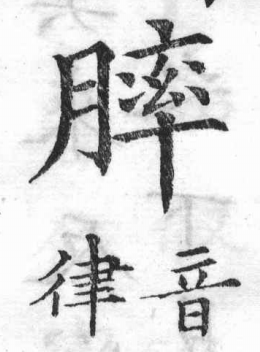 膟
音律